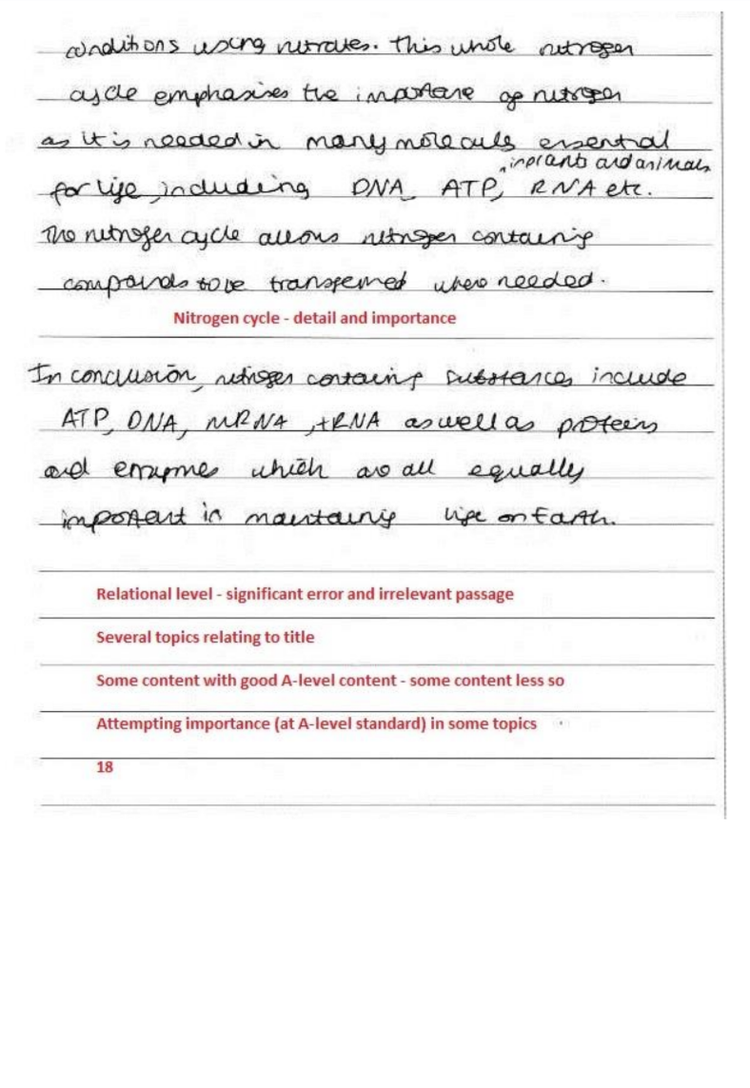 conditions using nitrates. This whole nitrogen
cycle emphasises the importance of nitrogen
as it is needed in many molecules essential
, in plants and animals
for life, including DNA, ATP, RNA etc.
The nitrogen cycle allows nitrogen containing
compounds to be transferred where needed.
Nitrogen cycle - detail and importance
In conclusion, nitrogen containing substances include
ATP, DNA, mRNA, tRNA as well as proteins
and enzymes which are all equally
important in maintaining life on Earth.
Relational level - significant error and irrelevant passage
Several topics relating to title
Some content with good A-level content - some content less so
Attempting importance (at A-level standard) in some topics
18